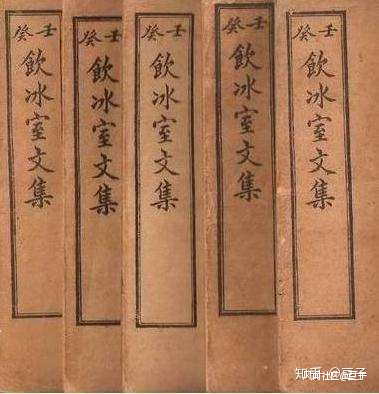 壬癸
飲冰室文集
壬癸
飲冰室文集
壬癸
飲冰室文集
壬癸
飲冰室文集
壬癸
飲冰室文集
知乎